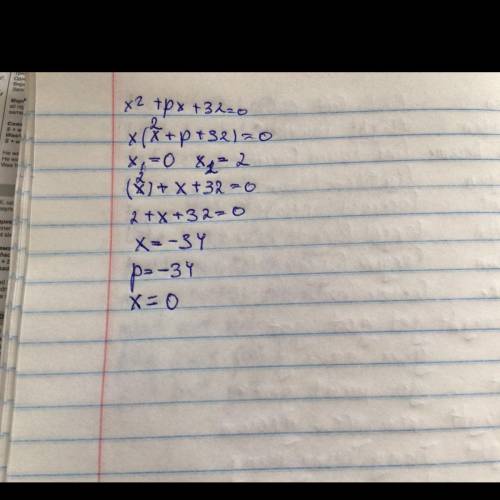 x² + px + 32 = 0
x(x² + p + 32) = 0
x₁ = 0 x₂ = 2
(x²) + x + 32 = 0
2 + x + 32 = 0
x = -34
p = -34
x = 0